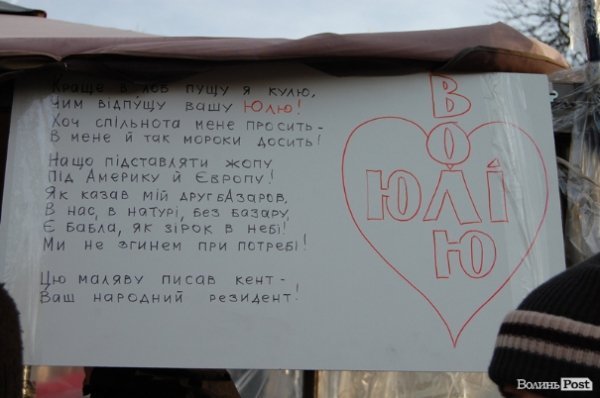 Краще в лоб пущу я кулю,
Чим відпущу вашу Юлю!
Хоч спільнота мене просить -
В мене й так мороки досить!
Нащо підставляти жопу
Під Америку й Європу!
Як казав мій друг бАзаров,
В нас, в натурі, без базару,
Є бабла, як зірок в небі!
Ми не згинем при потребі!
Цю маляву писав кент -
Ваш народний резидент!
ВОЛЮ
ЮЛІ
ВолиньPost